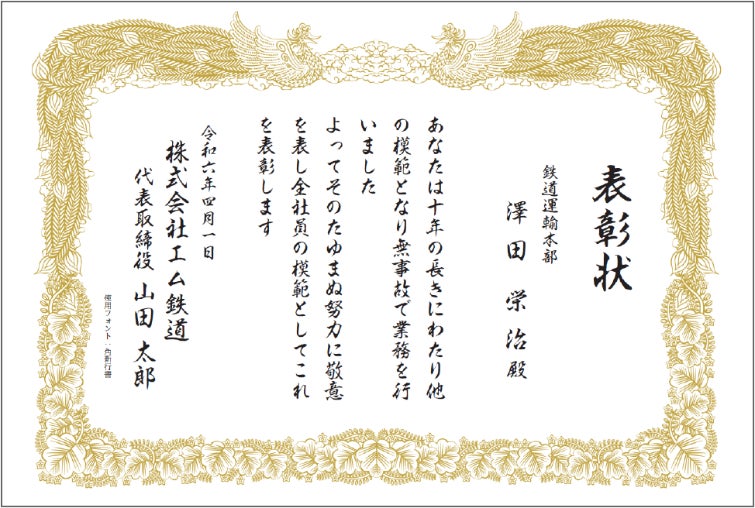 表彰状
鉄道運輸本部
澤田栄治殿
あなたは十年の長きにわたり他
の模範となり無事故で業務を行
いました
よってそのたゆまぬ努力に敬意
を表し全社員の模範としてこれ
を表彰します
令和六年四月一日
株式会社エム鉄道
代表取締役 山田太郎
使用フォント：角新行書